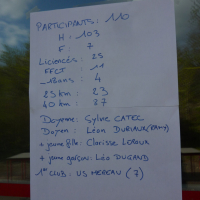 PARTICIPANTS : 110
H : 103
F : 7
LICENCIÉS : 25
FFCT : 11
-18ans : 4
23 km : 23
40 km : 87
Doyenne : Sylvie CATEL
Doyen : Léon DUBIAUX (PAMY)
+ jeune fille : Clarisse LEROUX
+ jeune garçon : Léo DUGAND
1er CLUB : US MEREAU (7)